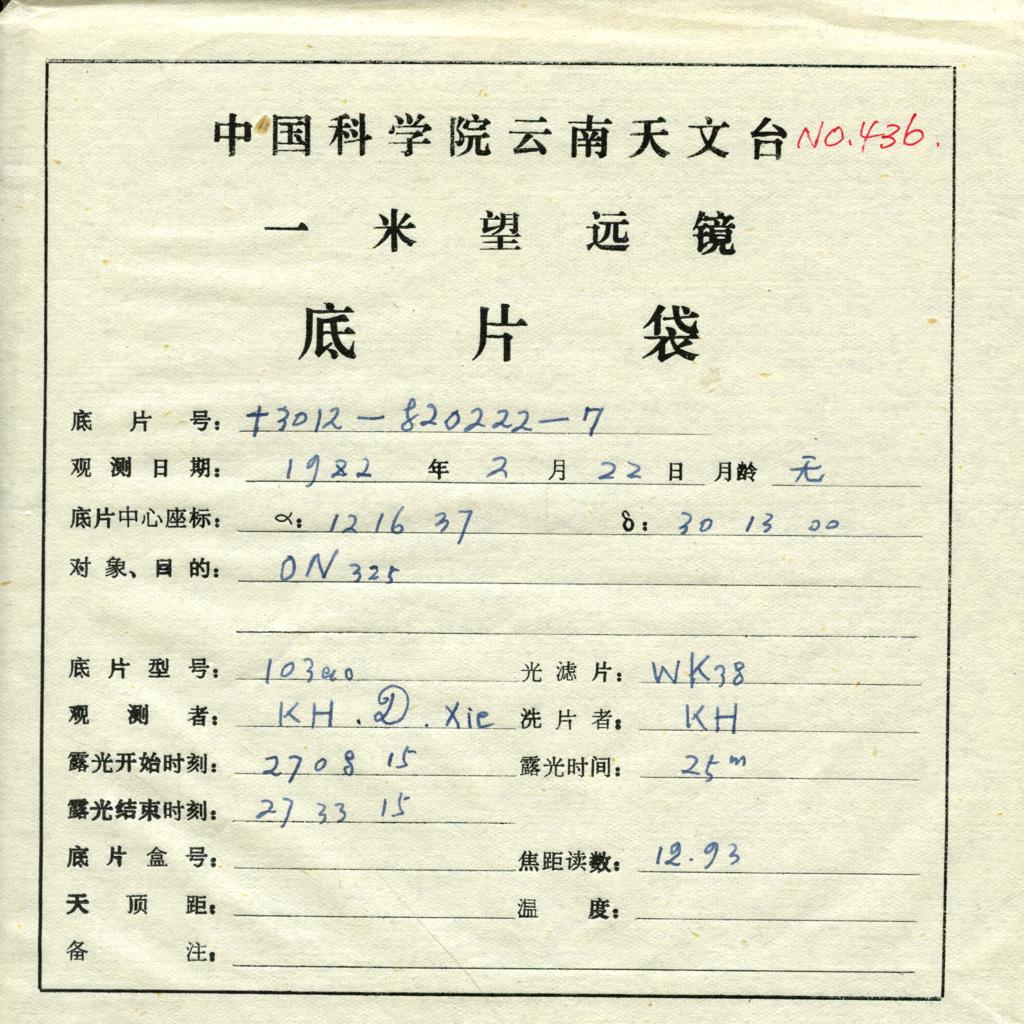 中国科学院云南天文台 NO.436.
一米望远镜
底片袋
底片号: +3012-820222-7
观测日期: 1982 年 2 月 22 日 月龄 无
底片中心座标: α: 12 16 37 δ: 30 13 00
对象、目的: ON 325
底片型号: 103aO 光滤片: WK38
观测者: KH. D. Xie 洗片者: KH
露光开始时刻: 27 08 15 露光时间: 25m
露光结束时刻: 27 33 15
底片盒号: 焦距读数: 12.93
天顶距: 温度:
备注: